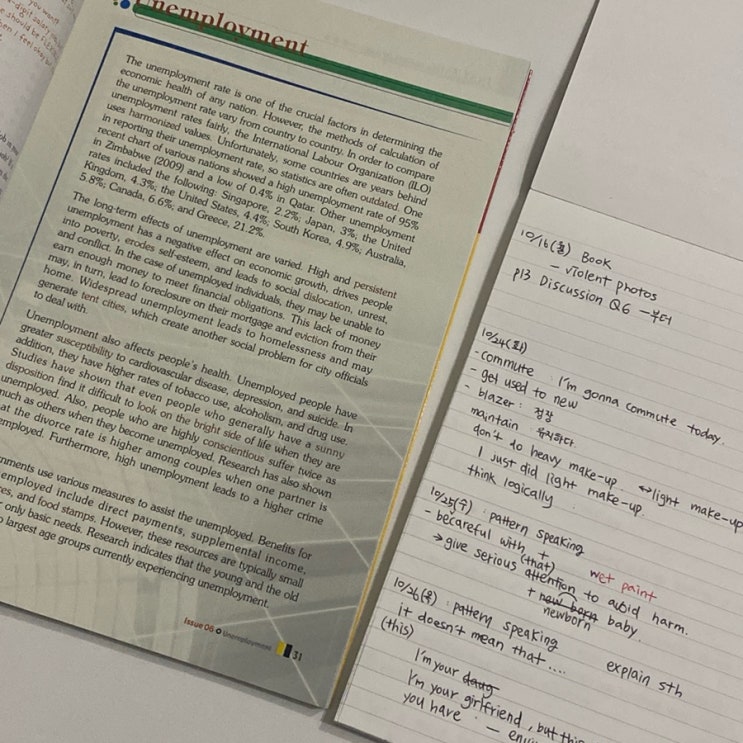 you want
-digit salary
e should be
en I feel
Unemployment
The unemployment rate is one of the crucial factors in determining the
economic health of any nation. However, the methods of calculation of
the unemployment rate vary from country to country. In order to compare
unemployment rates fairly, the International Labour Organization (ILO)
uses harmonized values. Unfortunately, some countries are years behind
in reporting their unemployment rate, so statistics are often outdated. One
recent chart of various nations showed a high unemployment rate of 95%
in Zimbabwe (2009) and a low of 0.4% in Qatar. Other unemployment
rates included the following: Singapore, 2.2%; Japan, 3%; the United
Kingdom, 4.3%; the United States, 4.4%; South Korea, 4.9%; Australia,
5.8%; Canada, 6.6%; and Greece, 21.2%.
The long-term effects of unemployment are varied. High and persistent
unemployment has a negative effect on economic growth, drives people
into poverty, erodes self-esteem, and leads to social dislocation, unrest,
and conflict. In the case of unemployed individuals, they may be unable to
earn enough money to meet financial obligations. This lack of money
may, in turn, lead to foreclosure on their mortgage and eviction from their
home. Widespread unemployment leads to homelessness and may
generate tent cities, which create another social problem for city officials
to deal with.
Unemployment also affects people's health. Unemployed people have
greater susceptibility to cardiovascular disease, depression, and suicide. In
addition, they have higher rates of tobacco use, alcoholism, and drug use.
Studies have shown that even people who generally have a sunny
disposition find it difficult to look on the bright side of life when they are
unemployed. Also, people who are highly conscientious suffer twice as
much as others when they become unemployed. Research has also shown
at the divorce rate is higher among couples when one partner is
employed. Furthermore, high unemployment leads to a higher crime
rnments use various measures to assist the unemployed. Benefits for
employed include direct payments, supplemental income,
es, and food stamps. However, these resources are typically small
r only basic needs. Research indicates that the young and the old
o largest age groups currently experiencing unemployment.
Issue 06 Unemployment 31
10/16(월) Book
- violent photos
p13 Discussion Q6 -부터
10/24(화)
- commute : I'm gonna commute today.
- get used to new
- blazer : 정장
maintain 유지하다
don't do heavy make-up ↔ light make-up
I just did light make-up.
think logically
10/25(수) : pattern speaking
- becareful with + wet paint
(that)
→ give serious attention to avoid harm.
+ new born baby.
newborn
10/26(목) : pattern speaking explain sth
it doesn't mean that ....
(this)
I'm your daug
I'm your girlfriend, but this
you have